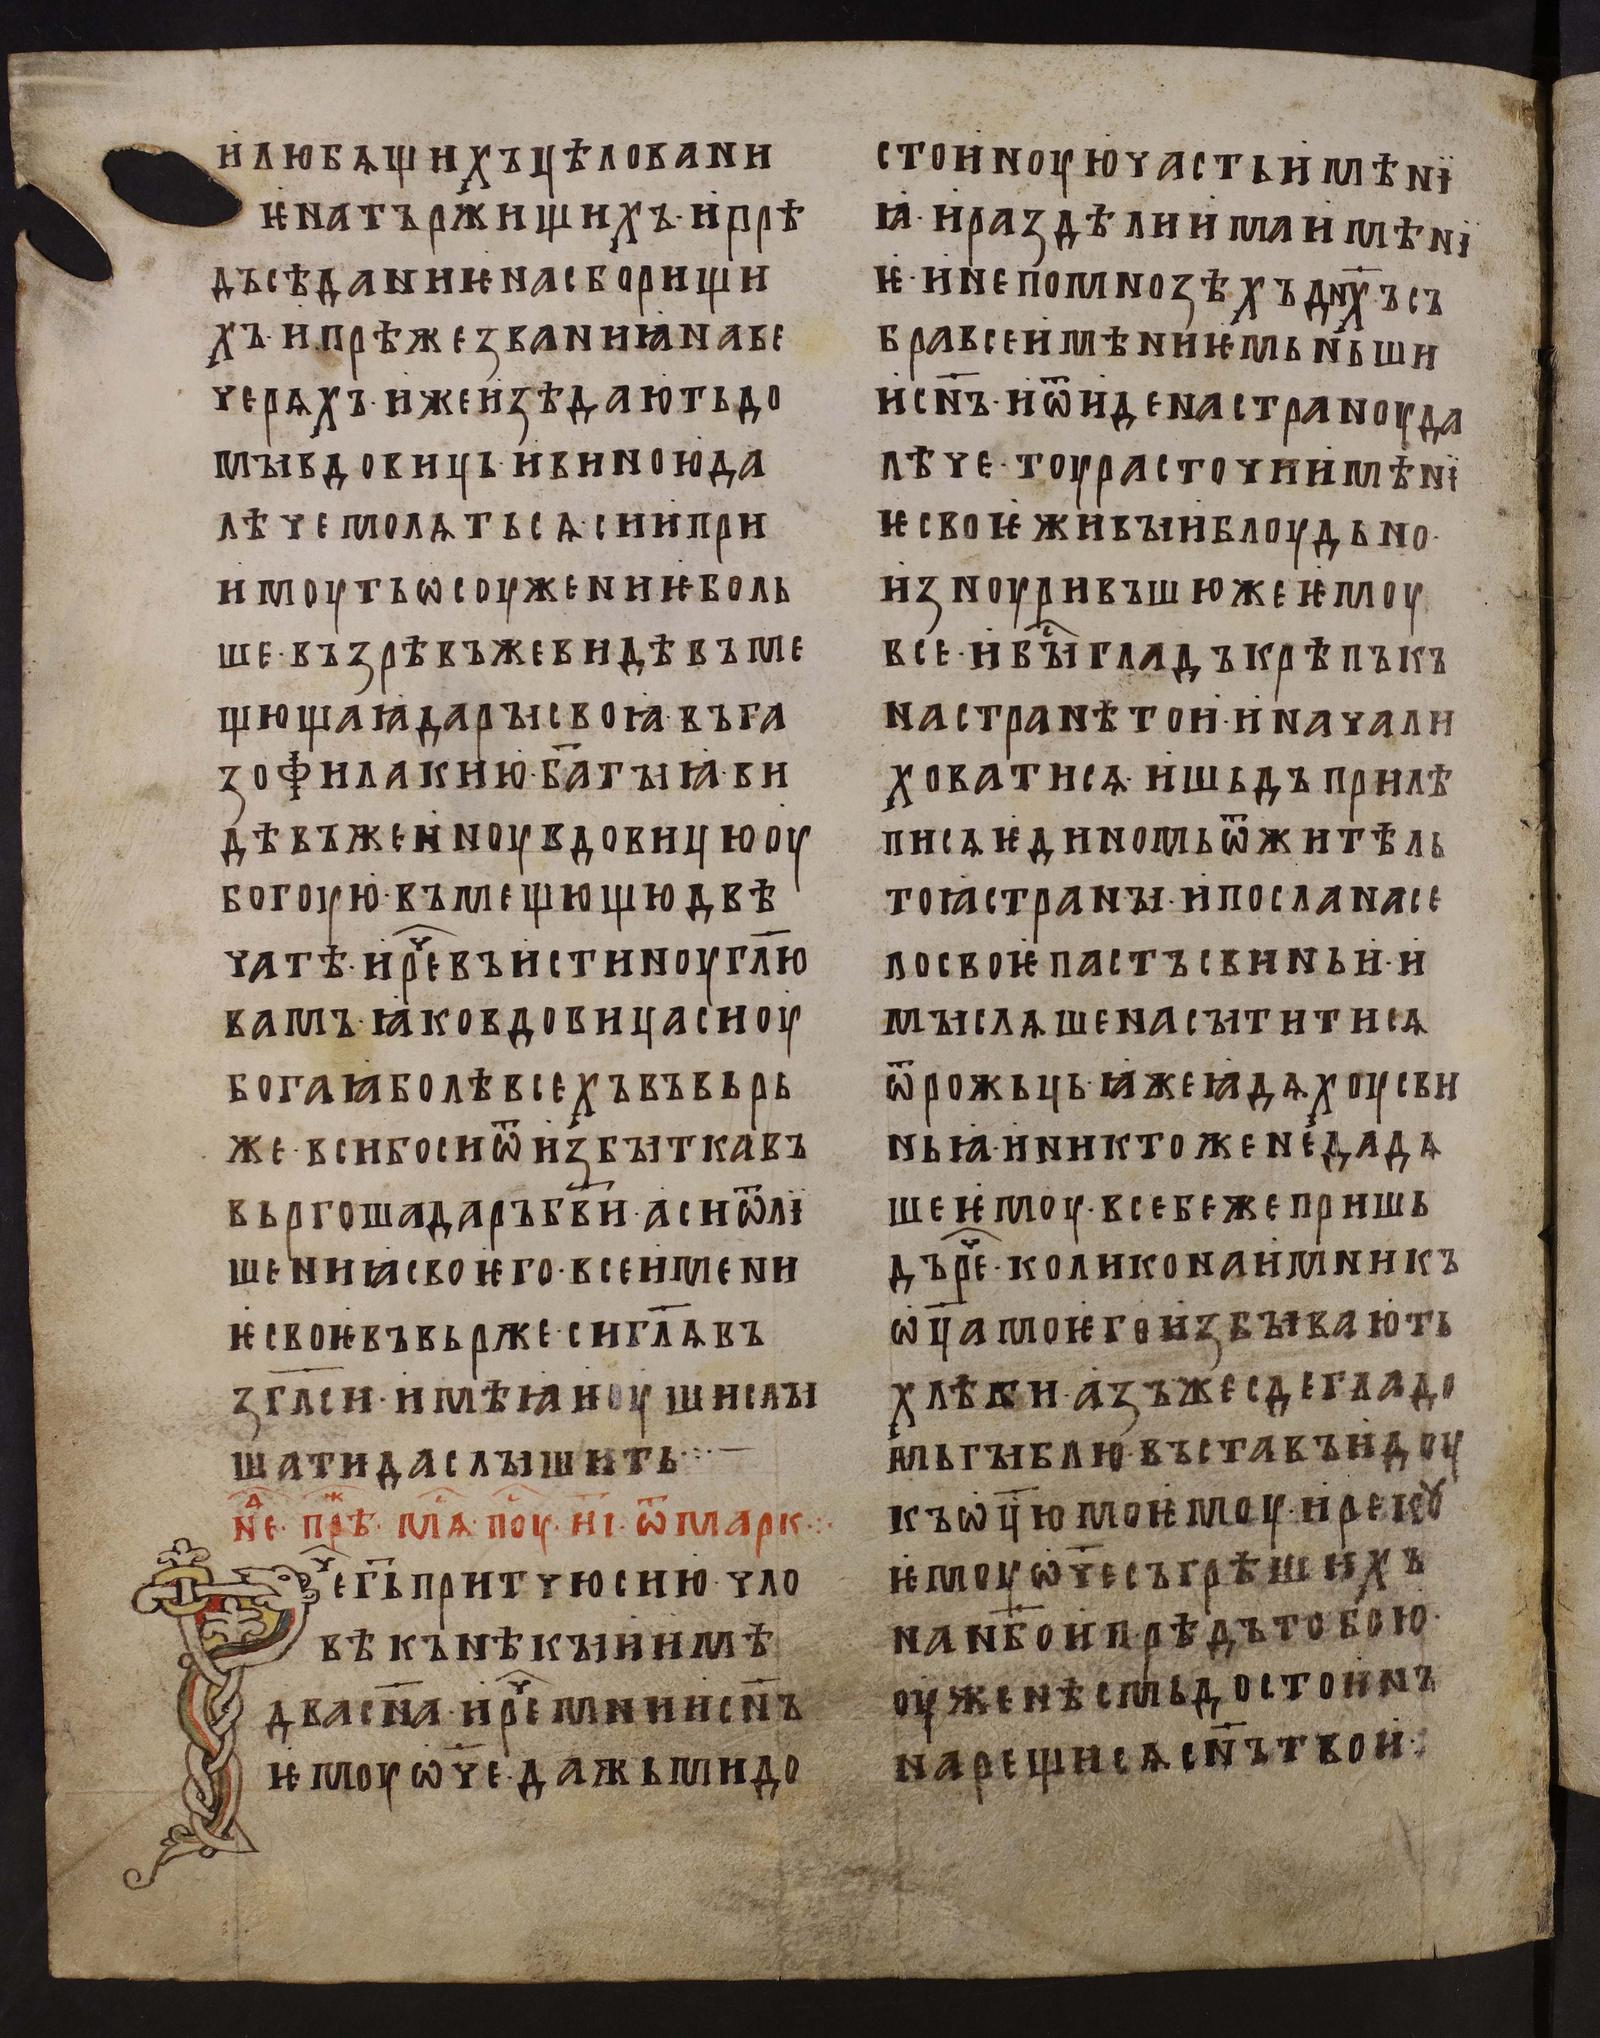 и любѧщихъ цѣловани
ѥ на тържищихъ· и прѣ
дъсѣданиѥ на сборищи
хъ· и прѣжезваниꙗ на ве
черѧхъ· иже изѣдають до
мы вдовиць· и виною да
лѣче молѧтьсѧ· сии при
имоуть ѡсоужениѥ боль
ше· възрѣвъ же видѣ въме
щющаꙗ дары своꙗ· въ га
зофилакию· б҃атыꙗ· ви
дѣвъ же и ноу вдовицю оу
богоую· въмещющю двѣ
чатѣ· и рⷱ҇е въистиноу гл҃ю
вамъ· ꙗко вдовица си оу
богаꙗ боле всехъ въвьрь
же· вси бо си ѿ избытка въ
вьргоша даръ б҃ви· а си ѿ лі
шениꙗ своѥго· все имени
ѥ своѥ въвьрже· си гл҃ѧ въ
зг҃ласи· имѣꙗи оуши слы
шати да слышить·:·—
неⷣ· прѣⷤ· мѧⷭ· поуⷭ· н҃і· ѿ марк·:·
Рⷱ҇е г҃ь притчю сию· чло
вѣкъ нѣкыи имѣ
два сн҃а· и рⷱ҇е мнии сн҃ъ
ѥмоу ѡ҃че· дажь ми до
стоиноую часть имѣнї
ꙗ· и раздѣли има имѣнї
ѥ· и не по мнозѣхъ дн҃хъ съ
бра все имѣниѥ мьньши
и сн҃ъ· и ѿиде на страноу да
лѣче· тоу расточи имѣнї
ѥ своѥ живыи блоудьно·
изноуривъшю же ѥмоу
все· и быⷭ гладъ крѣпъкъ
на странѣ тои· и начали
ховатисѧ· и шьдъ прилѣ
писѧ ѥдиномь ѿ житѣль
тоꙗ страны· и посла на се
ло своѥ пастъ свиньи· и
мыслѧше насытитисѧ
ѿ рожьць· ꙗже ꙗдѧхоу сви
ньꙗ· и никтоже не дадѧ
ше ѥмоу· в себе же пришь
дъ рⷱ҇е· колико наимникъ
ѡц҃а моѥго избывають
хлѣби· азъ же сде гладо
мь гыблю· въставъ идоу
къ ѡц҃ю моѥмоу· и рекꙋ
ѥмоу ѡч҃е съгрѣшихъ
на нб҃о и прѣдъ тобою·
оуже нѣсмь достоинъ
нарещисѧ сн҃ъ твои·: